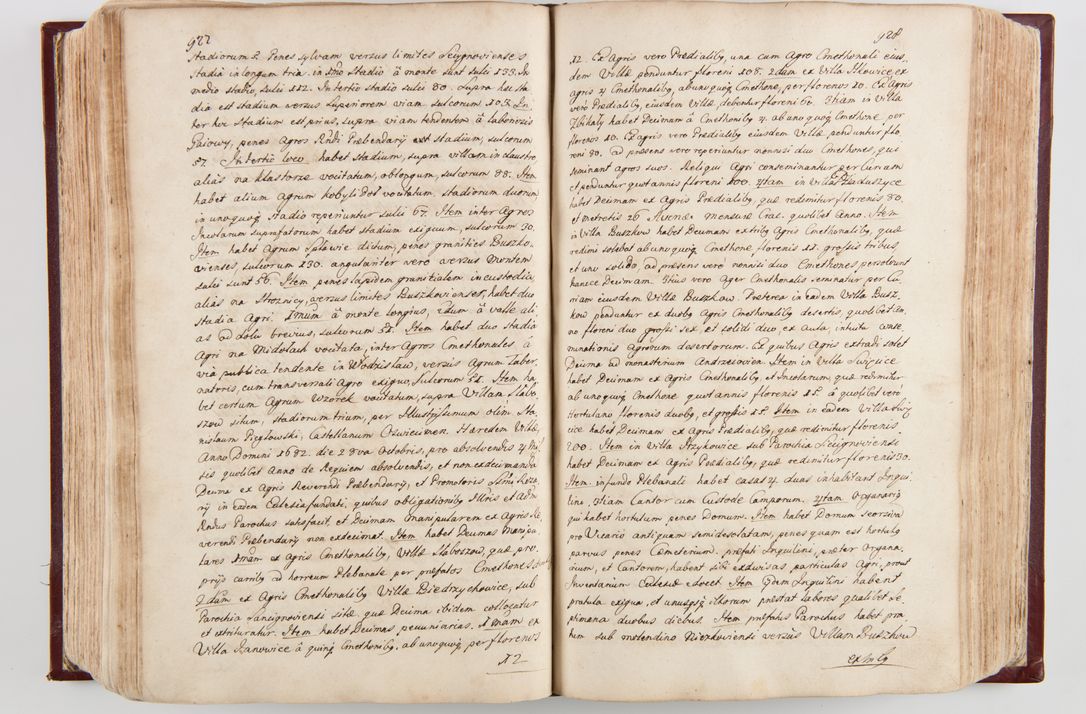 922
stadiorum 2. Penes sylvam versus limites Sciignovienses
stadia in longum tria. in 1mo Stadio â monte sunt sulci 133. In
medio stadio, sulci 112. In tertio stadio sulci 80. Supra hæ sta
dia est stadium versus superiorem viam sulcorum 103. In
ter hæc stadium est prius, supra viam tendentem â Laborozis
Gaiowy, penes agros Rndi Præbendarÿ est stadium, sulcorum
57. In tertio loco habet stadium, supra villam in claustro
aliàs na klastorze vocitatum, oblongum, sulcorum 88. Item
habet alium agrum kobyli Dół vocitatum, stadiorum duorum
in unoquoq; stadio reperiuntur sulci 67. Item inter agros
Incolarum suprafatorum habet stadium exiguum, sulcorum 30.
Item habet agrum Spławie dictum, penes granities Buszko,
vienses, sulcorum 130. angulariter verò versus montem
sulci sunt 56. Item penes lapidem granitialem in custodia
aliàs na Stroznicy, versus limites Buszkovienses, habet duo
stadia Agri. 1mum â monte longius, 2dum â valle ali,
as od dolu brevius, sulcorum 52. Item habet duo stadia
Agri na Midołach vocitata, inter Agros Cmethonales â
via publica tendente in Wodzisław, versus Agrum Taber,
natoris, cum transversali agro exiguo, sulcorum 51. Item ha,
bet certum Agrum Wzorek vocitatum, supra Villam Słabo,
szow situm, stadiorum trium, per Illustrissimum olim Sta,
nislaum Pręglowski, Castellanum Oswiecimen. Hæredem Villæ,
Anno Domini 1682. die 2 8va Octobris, pro absolvendis 4 Mis
sis quolibet Anno de Requiem absolvendis, et non exdecimanda
Decima ex Agris Reverendi Præbendarÿ, et Promotoris SSmi Rosa,
rÿ in eadem Ecclesia fundati, quibus obligationibq Illris et Adm
Rndus Parochus satisfacit, et Decimam manipularem ex Agris Re,
verendi Præbendarÿ non exdecimat. Item habet Decimas Manipu
lares 1mam ex Agris Cmethonalibq Villæ Słaboszow, quæ pro,
prÿs curribq ad horreum Plebanale per præfatos Cmethones
2dam ex Agris Cmethonalibq Villæ Biedrzychowice, sub
Parochia Sancignoviensi sitæ, quæ Decima ibidem collocatur
et extrituratur. Item habet Decimas pecuniarias. 1mam ex
Villa Janowice â quinq Cmethonibq, ab unoquoq per florenos
12
928
12. Ex Agris vero Prædialibq, una cum Agro Cmethonali eius,
dem Villæ penduntur floreni 108. 2dam ex Villa Ilkowice, ex
agris 4 Cmethonalibq, ab unoquoq Cmethone, per florenos 10. Ex Agris
verò Prædialibq, eiusdem Villæ, debentur floreni 60. 3tiam in Villa
Zbikały habet Decimam â Cmethonibq 4. ab unoquoq Cmethone per
florenos 10. Ex agris vero Prædialibq eiusdem Villæ penduntur flo
reni 80. ad præsens vero reperiuntur nonnisi duo Cmethones, qui
seminant agros suos. Reliqui Agri conseminantur per Curiam
et penduntur quotannis floreni 100. 4tam in Villa Działuszyce
habet Decimam ex Agris Prædialibq, quæ redimitur florenis 80.
et metretis 26 Avenæ mensuræ Crac. quolibet Anno. Item
in Villa Buszkow habet Decimam ex tribq Agris Cmethonalibq, quæ
redimi solebat ab unoquoq Cmethone, florenis 11. grossis tribus,
et uno solido, ad præsens verò nonnisi duo Cmethones persolvunt
hancce Decimam. 3tius vero Ager Cmethonalis seminatur per Cu,
riam eiusdem Villæ Buszkow. Præterea in eadem Villa Busz
kow penduntur ex duobq Agris Cmethonalibq desertis, quolibet An,
no floreni duo grossi sex, et solidi duo, ex Aula, intuitu conse,
minationis Agrorum desertorum. Ex quibus Agris extradi solet
Decima ad monasterium Andrzeiovien. Item in Villa Swięcice
habet Decimam ex Agris Cmethonalibq, et Incolarum, quæ redimitur
ab unoquoq Cmethone quotannis florenis 15. â quolibet verò
Hortulano florenis duobq, et grossis 15. Item in eadem Villa Swię
cice habet Decimam ex Agris Prædialibq, quæ redimitur florenis
200. Item in Villa Strzykowice sub Parochia Sciignoviensi
habet Decimam ex Agris Prædialibq, quæ redimitur florenis 30.
Item. in fundo Plebanali habet casas 4. duas inhabitant Inqui,
lini, 3tiam Cantor cum Custode Camporum. 4tam. Organariq
qui habet hortulum penes Domum. Item habet Domum seorsiva
pro Vicario antiquam semidesolatam, penes quam est hortulq
parvus penes Cæmeterium. præfati Inquilini, præter Organa,
rium, et Cantorem, habent sibi exdivisas particulas Agri, prout
Inventarium Ecclesiæ docet. Item iidem Inquilini habent
pratula exigua, et unusqsq illorum præstat labores qualibet Se,
ptimana duobus diebus. Item præfatus Parochus habet pra
tum sub molendino Niezwiensi versus Villam Buszkow